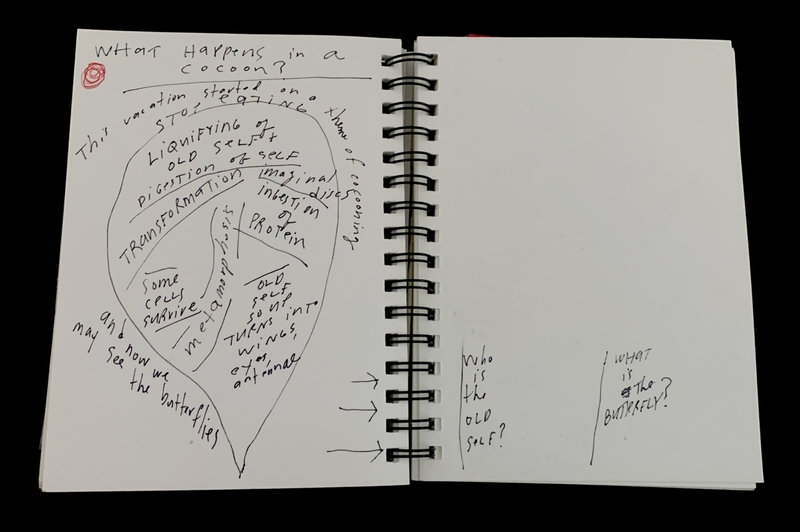 WHAT HAPPENS in a
COCOON?
This vacation started on a
theme of cocooning
STOP EATING
LIQUIFYING of
OLD SELF +
DIGESTION of SELF
TRANSFORMATION
imaginal
discs
ingestion
of
PROTEIN
metamorphosis
SOME
CELLS
SURVIVE
OLD
SELF
SOUP
TURNS INTO
WINGS,
eyes,
antennae
and now we
may see the butterflies
Who
is
the
OLD
SELF?
WHAT
is
the
BUTTERFLY?